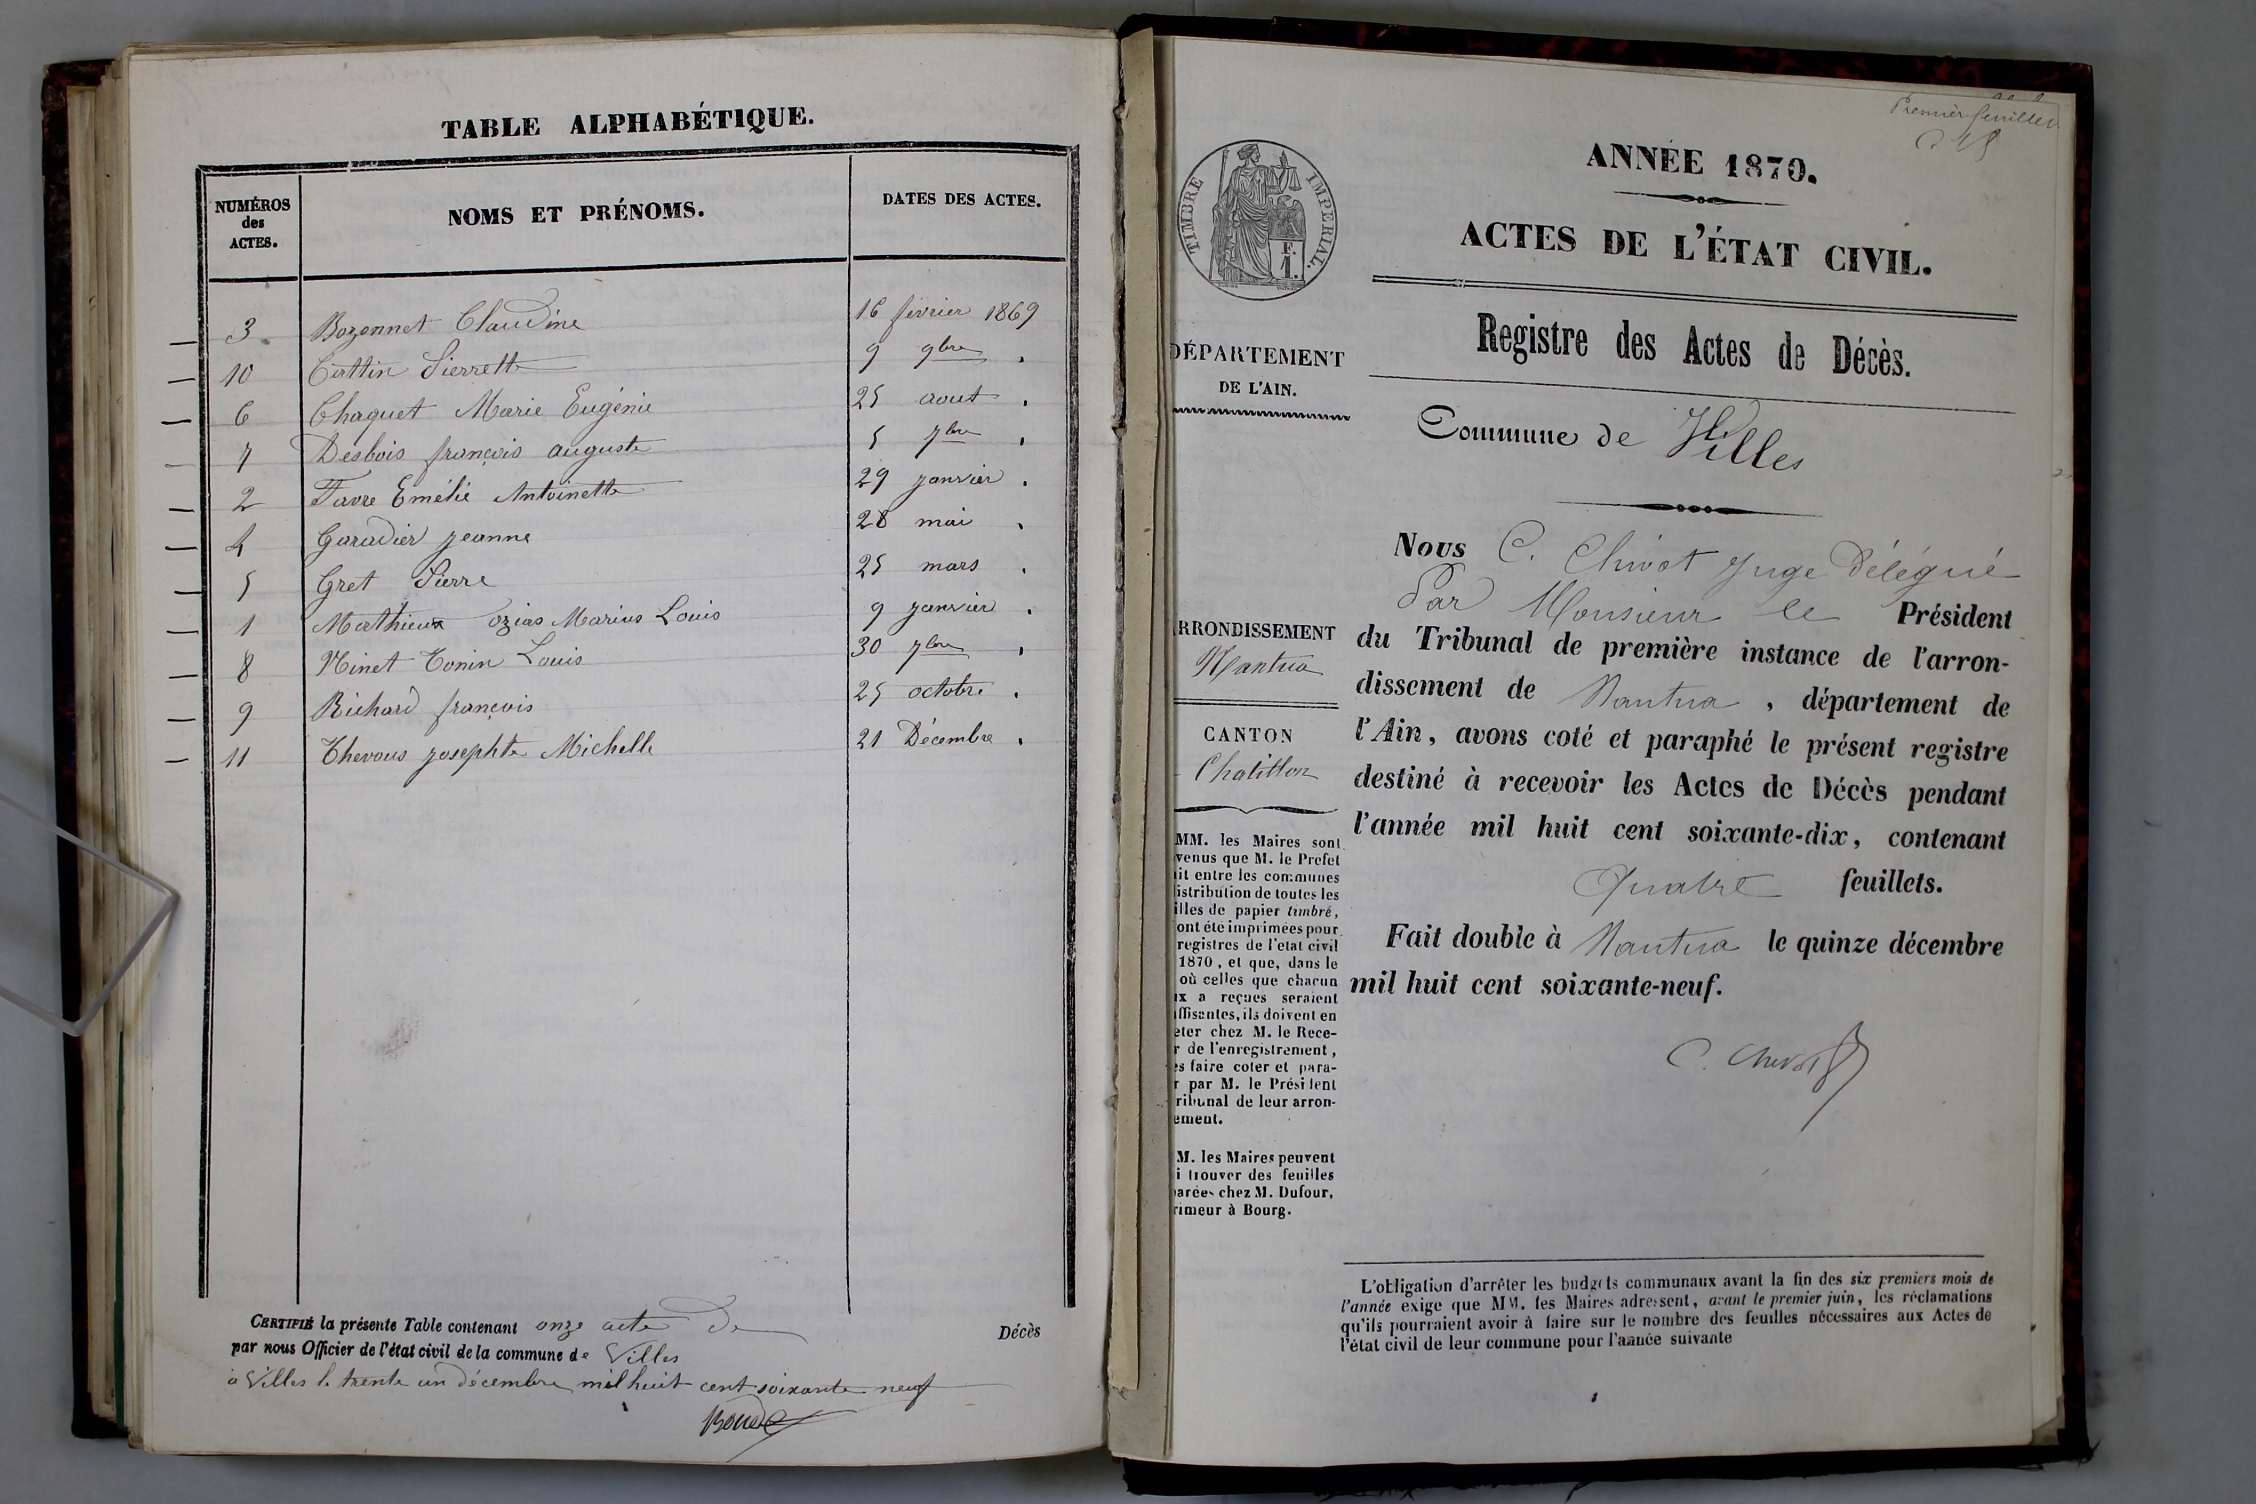 TABLE ALPHABÉTIQUE.
NUMÉROS des ACTES. NOMS ET PRÉNOMS. DATES DES ACTES.
3 Bozonnet Claudine 16 février 1869
10 Cottin Pierrette 9 9bre
6 Chaquet Marie Eugénie 25 aout
7 Desbois françois auguste 5 7bre
2 Favre Emélie Antoinette 29 janvier
4 Garadier jeanne 28 mai
5 Gret Pierre 25 mars
1 Mathieux ozias Marius Louis 9 janvier
8 Ninet Tonin Louis 30 7bre
9 Richard françois 25 octobre
11 Thevous josephte Michelle 21 Décembre
CERTIFIÉ la présente Table contenant onze acte De Décès
par nous Officier de l'état civil de la commune de Villes
à Villes le trente un décembre mil huit cent soixante neuf
Premier feuillet
TIMBRE IMPERIAL.
F. 1.
ANNÉE 1870.
ACTES DE L'ÉTAT CIVIL.
Registre des Actes de Décès.
DÉPARTEMENT
DE L'AIN.
Commune de Villes
ARRONDISSEMENT
Nantua
CANTON
Chatillon
MM. les Maires sont
venus que M. le Prefet
it entre les communes
istribution de toutes les
illes de papier timbré,
ont été imprimées pour
registres de l'etat civil
1870, et que, dans le
où celles que chacun
x a reçues seraient
ffisantes, ils doivent en
eter chez M. le Rece-
r de l'enregistrement,
es faire coter et para-
r par M. le Président
ribunal de leur arron-
ement.
M. les Maires peuvent
i trouver des feuilles
arées chez M. Dufour,
rimeur à Bourg.
Nous C. Chivot juge Délégué
Par Monsieur le Président
du Tribunal de première instance de l'arron-
dissement de Nantua, département de
l'Ain, avons coté et paraphé le présent registre
destiné à recevoir les Actes de Décès pendant
l'année mil huit cent soixante-dix, contenant
Quatre feuillets.
Fait double à Nantua le quinze décembre
mil huit cent soixante-neuf.
C. Chivot
L'obligation d'arrêter les budgets communaux avant la fin des six premiers mois de
l'année exige que MM. les Maires adressent, avant le premier juin, les réclamations
qu'ils pourraient avoir à faire sur le nombre des feuilles nécessaires aux Actes de
l'état civil de leur commune pour l'année suivante